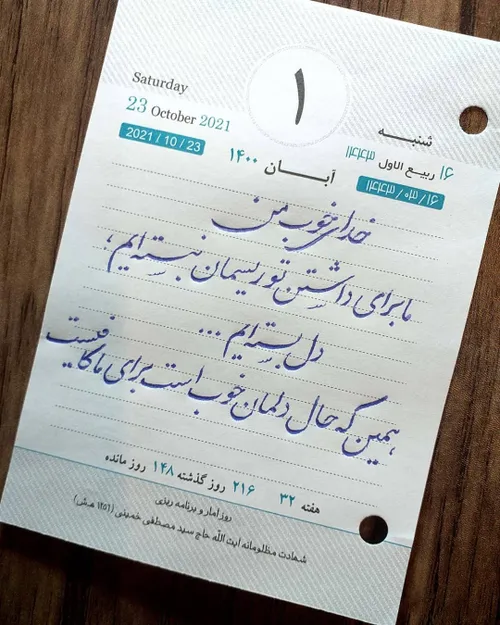 Saturday
23 October 2021
2021 / 10 / 23
۱
شنبه
۱۶ ربیع الاول ۱۴۴۳
۱۴۴۳ / ۰۳ / ۱۶
آبـان ۱۴۰۰
خدای خوب من
ما برای داشتن تو ریسمان نبسته‌ایم،
دل بسته‌ایم ...
همین که حال دلمان خوب است برای ما کافیست
هفته ۳۲ ۲۱۶ روز گذشته ۱۴۸ روز مانده
روز آمار و برنامه ریزی
شهادت مظلومانه آیت الله حاج سید مصطفی خمینی (۱۳۵۶ ه‍.ش)